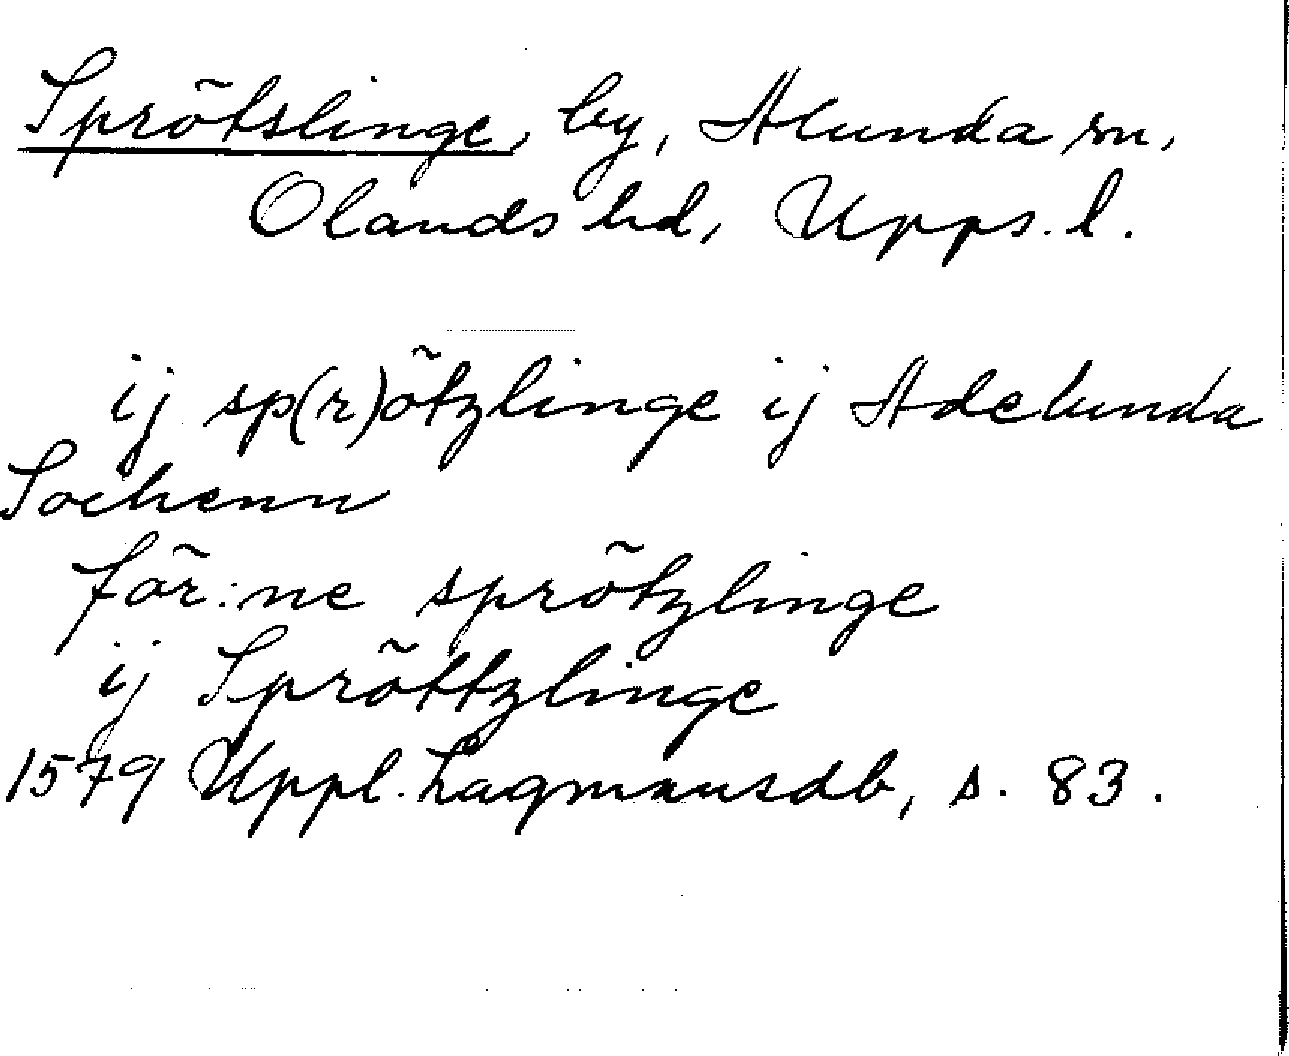 Sprötslinge, by, Alunda sn,
Olands hd, Upps. l.
ij sp(r)ötzlinge ij Adelunda
Sochenn
för:ne sprötzlinge
ij Spröttzlinge
1579 Uppl. Lagmansdb, s. 83.